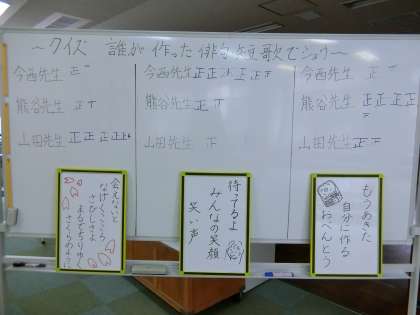 ～クイズ 誰が作った俳句・短歌でしょう～
今西先生 正
熊谷先生 正
山田先生 正正正正
今西先生 正正 正正正
熊谷先生 正
山田先生
今西先生 正
熊谷先生 正正正正
山田先生 正
会えないと
なげくこころの
さびしさよ
まるでちりゆく
さくらのように
待ってるよ
みんなの笑顔
笑い声
もうあきた
自分に作る
おべんとう